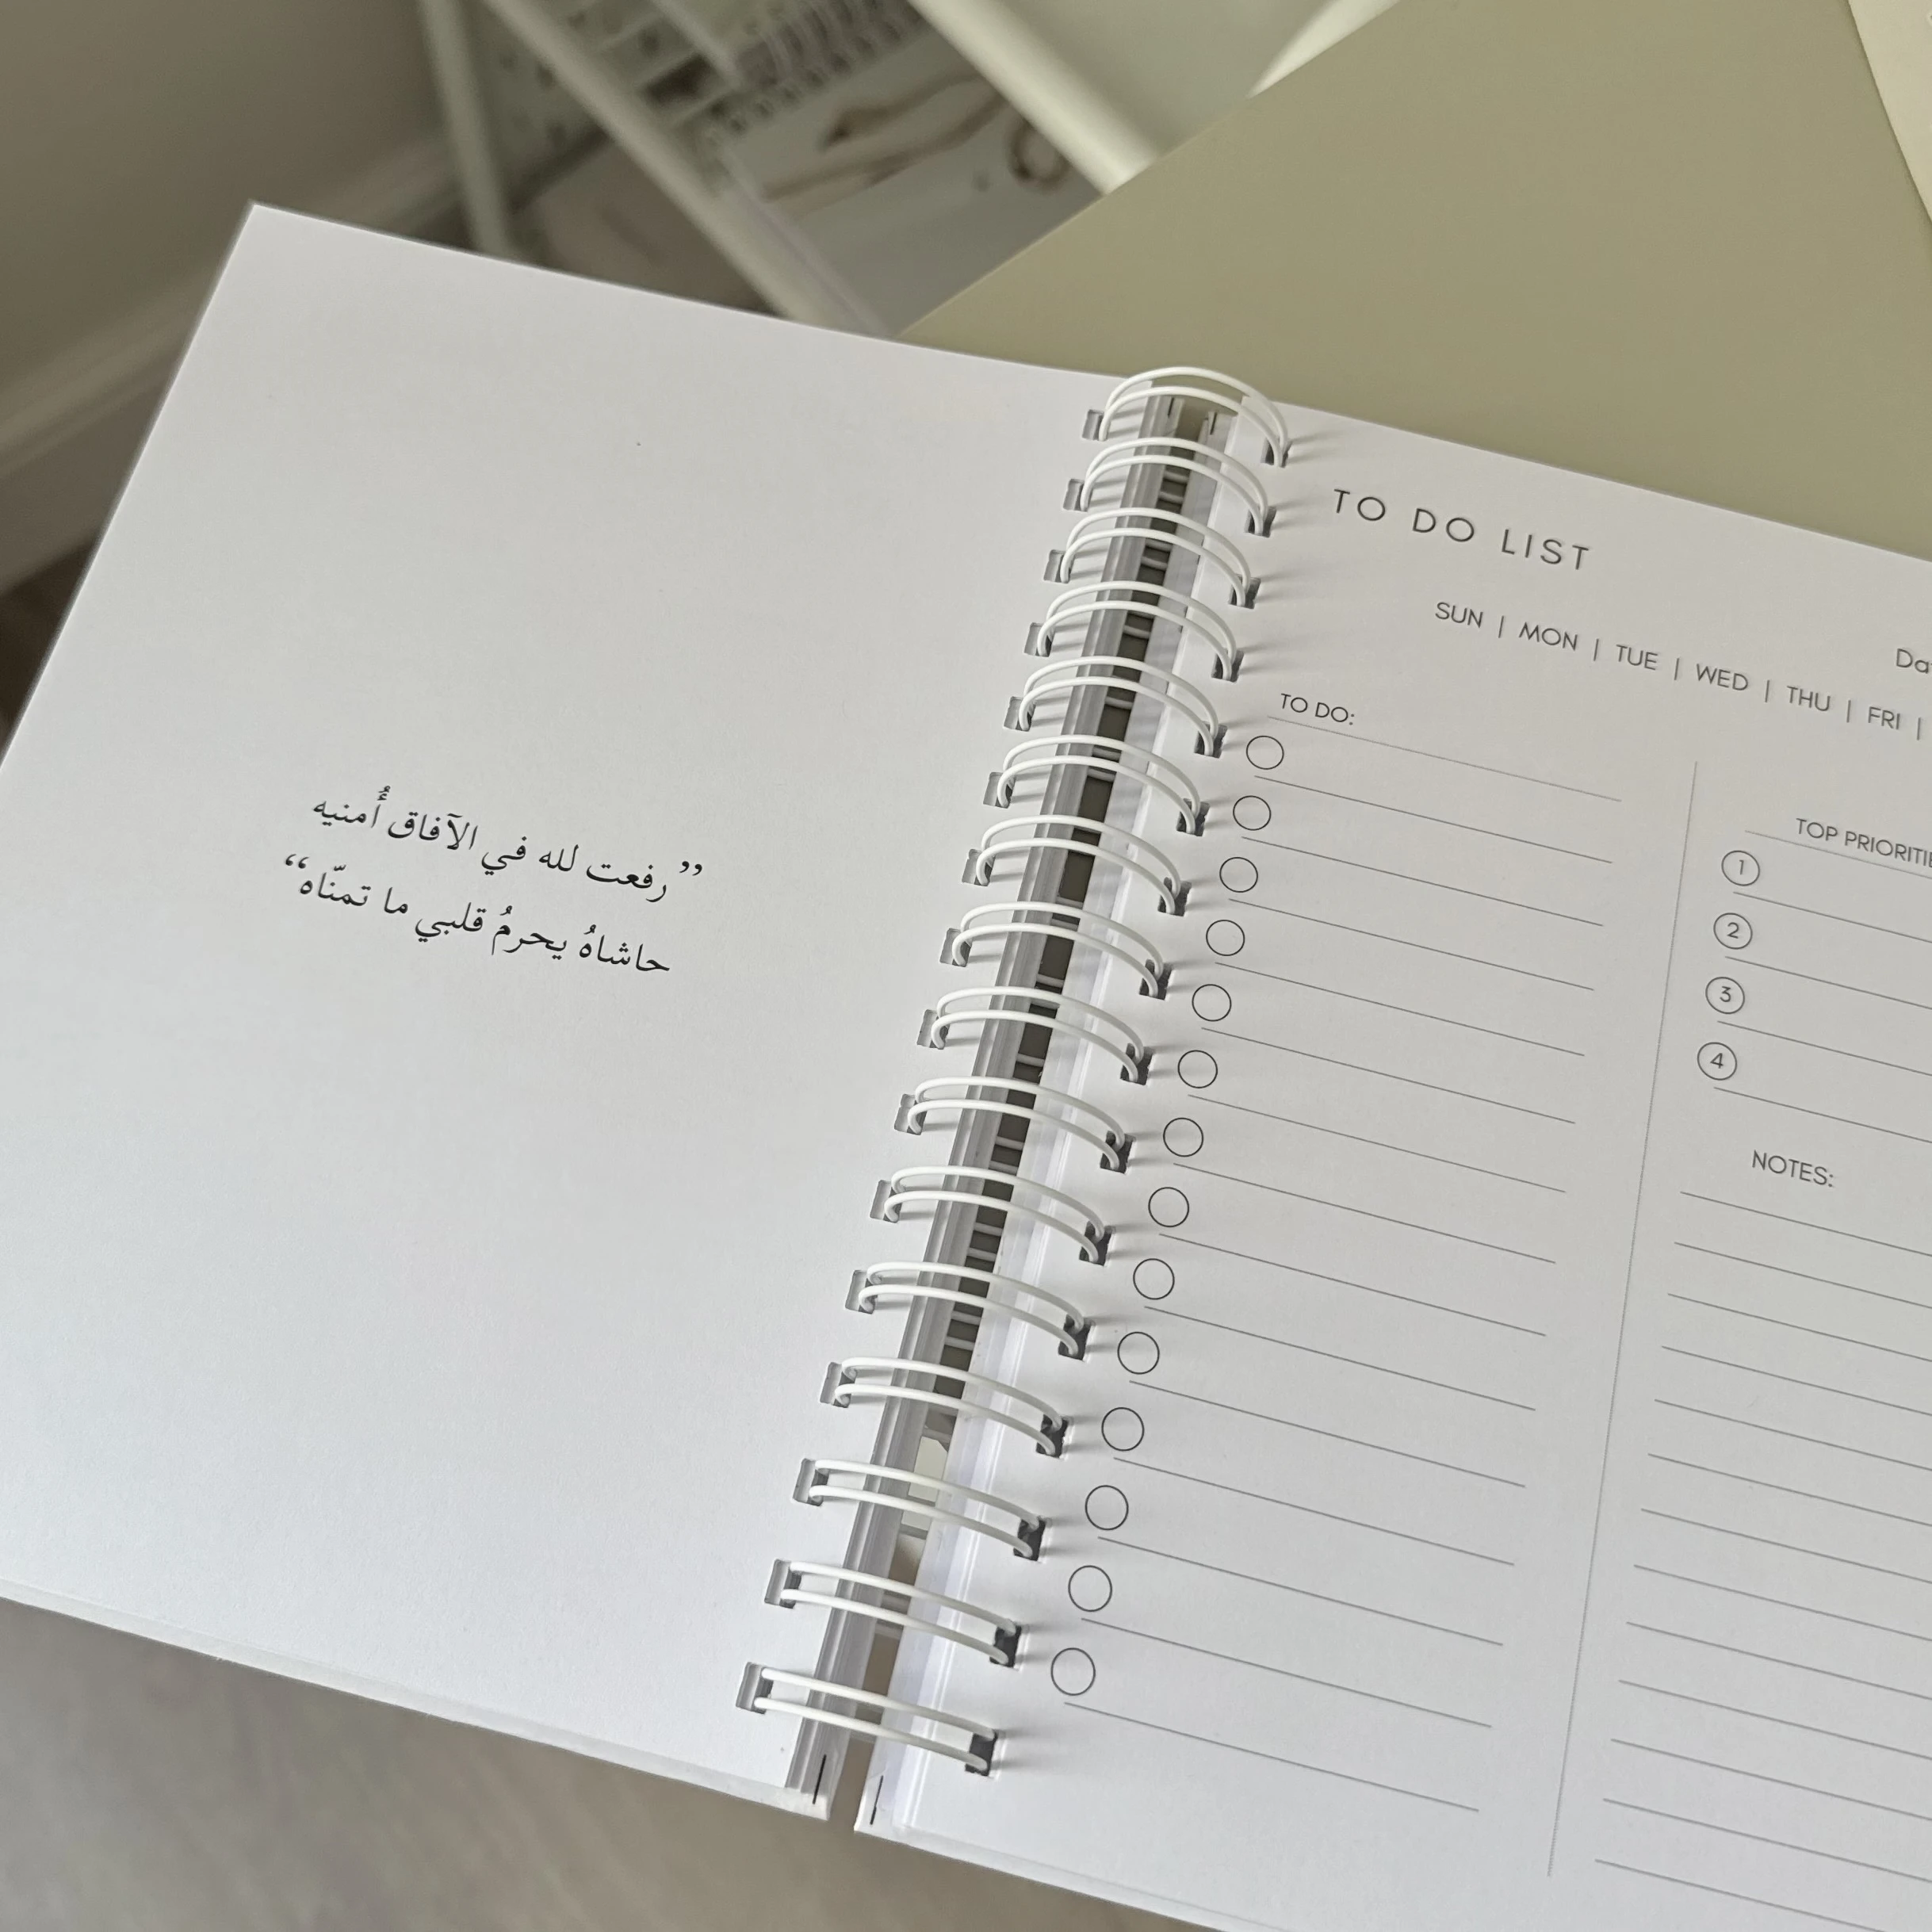 ”رفعت لله في الآفاق أُمنيه
حاشاهُ يحرمُ قلبي ما تمنّاه“
TO DO LIST
SUN | MON | TUE | WED | THU | FRI |
TO DO:
TOP
1
2
3
4
NOTES: